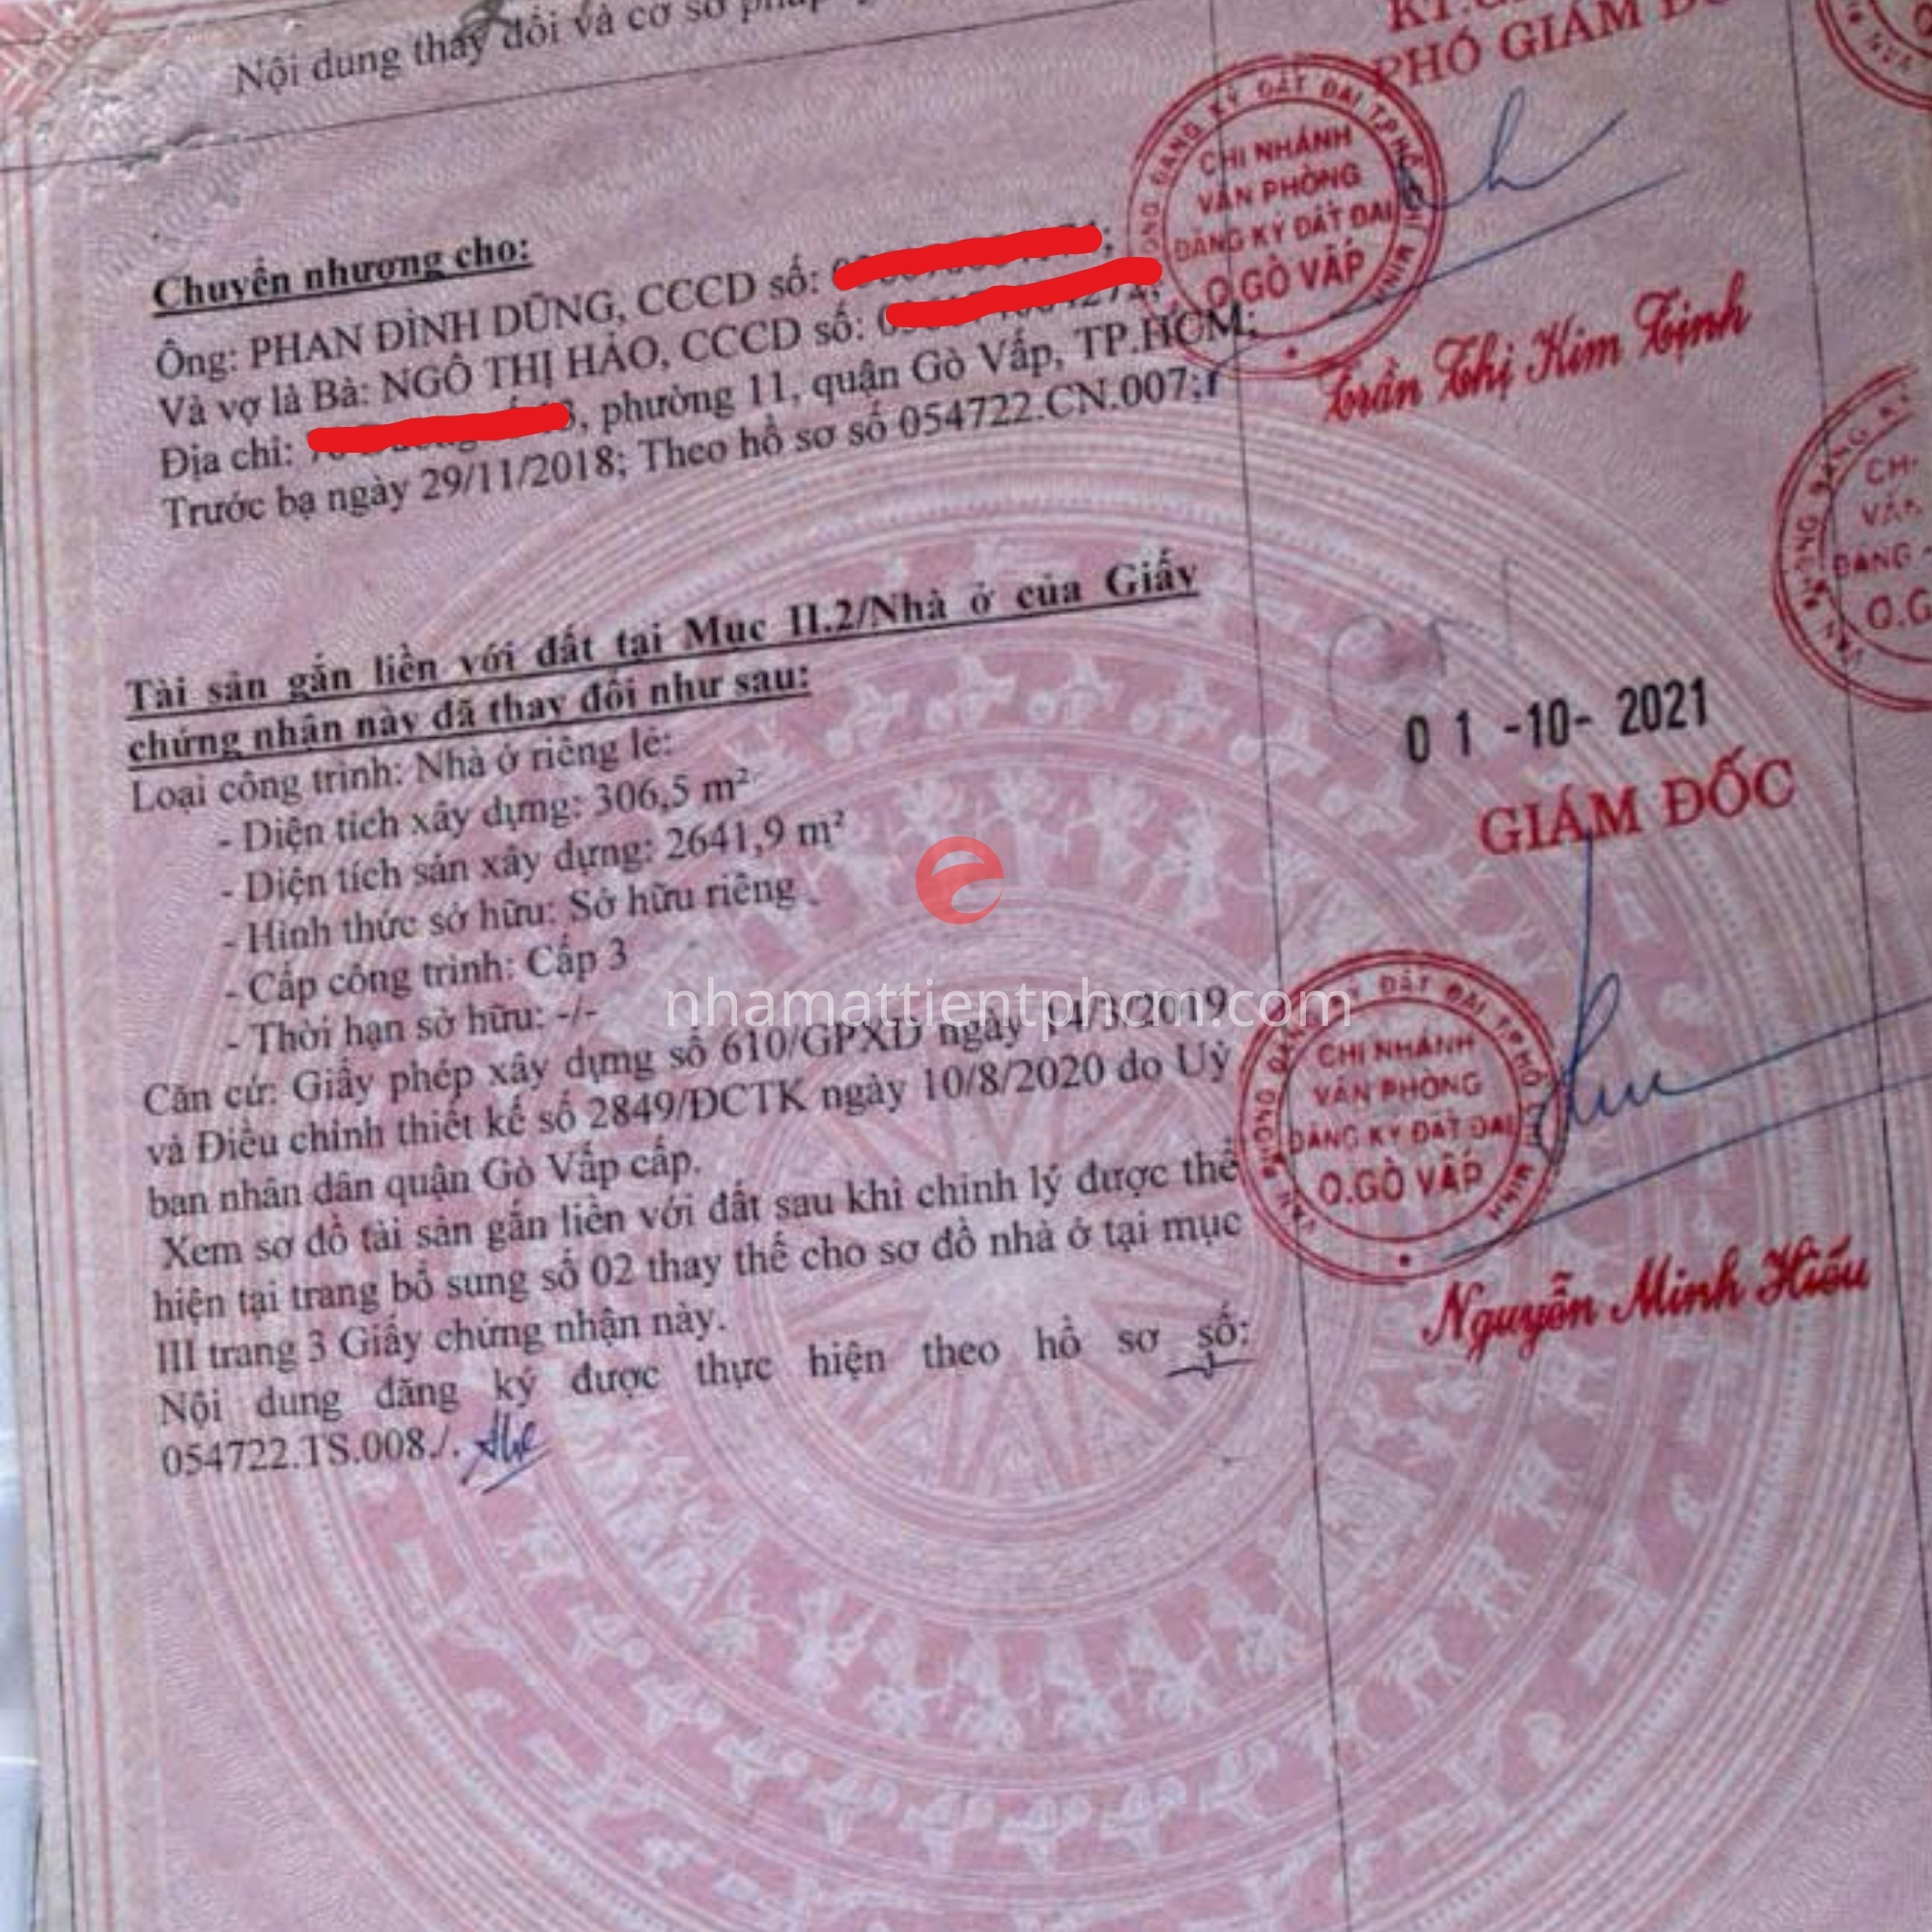 Nội dung thay đổi và cơ sở pháp
KT.
PHÓ GIÁM
Chuyển nhượng cho:
Ông: PHAN ĐÌNH DŨNG, CCCD số:
Và vợ là Bà: NGÔ THỊ HẢO, CCCD số:
Địa chỉ: , phường 11, quận Gò Vấp, TP.HCM;
Trước bạ ngày 29/11/2018; Theo hồ sơ số 054722.CN.007;
CHI NHÁNH
VĂN PHÒNG
ĐĂNG KÝ ĐẤT ĐAI
Q.GÒ VẤP
Trần Thị Kim Tịnh
Tài sản gắn liền với đất tại Mục II.2/Nhà ở của Giấy
chứng nhận này đã thay đổi như sau:
Loại công trình: Nhà ở riêng lẻ:
- Diện tích xây dựng: 306,5 m²
- Diện tích sàn xây dựng: 2641,9 m²
- Hình thức sở hữu: Sở hữu riêng
- Cấp công trình: Cấp 3
- Thời hạn sở hữu: -/-
Căn cứ: Giấy phép xây dựng số 610/GPXD ngày 14/3/2019
và Điều chỉnh thiết kế số 2849/ĐCTK ngày 10/8/2020 do Uỷ
ban nhân dân quận Gò Vấp cấp.
Xem sơ đồ tài sản gắn liền với đất sau khi chỉnh lý được thể
hiện tại trang bổ sung số 02 thay thế cho sơ đồ nhà ở tại mục
III trang 3 Giấy chứng nhận này.
Nội dung đăng ký được thực hiện theo hồ sơ số:
054722.TS.008./.
01 -10- 2021
GIÁM ĐỐC
CHI NHÁNH
VĂN PHÒNG
ĐĂNG KÝ ĐẤT ĐAI
Q.GÒ VẤP
Nguyễn Minh Hiếu
nhamattientphcm.com